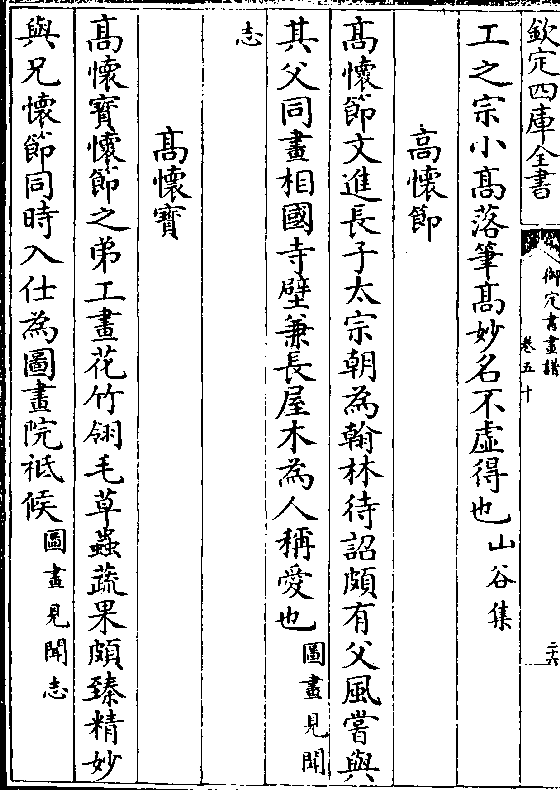 欽定四庫全書
御定書畫譜
卷五十
二六
工之宗小髙落筆髙妙名不虚得也山谷集
髙懷節
髙懷節文進長子太宗朝為翰林待詔頗有父風嘗與
其父同畫相國寺壁兼長屋木為人稱愛也圖畫見聞
志
髙懷寶
髙懷寶懷節之弟工畫花竹翎毛草蟲蔬果頗臻精妙
與兄懷節同時入仕為圖畫院祗候圖畫見聞志